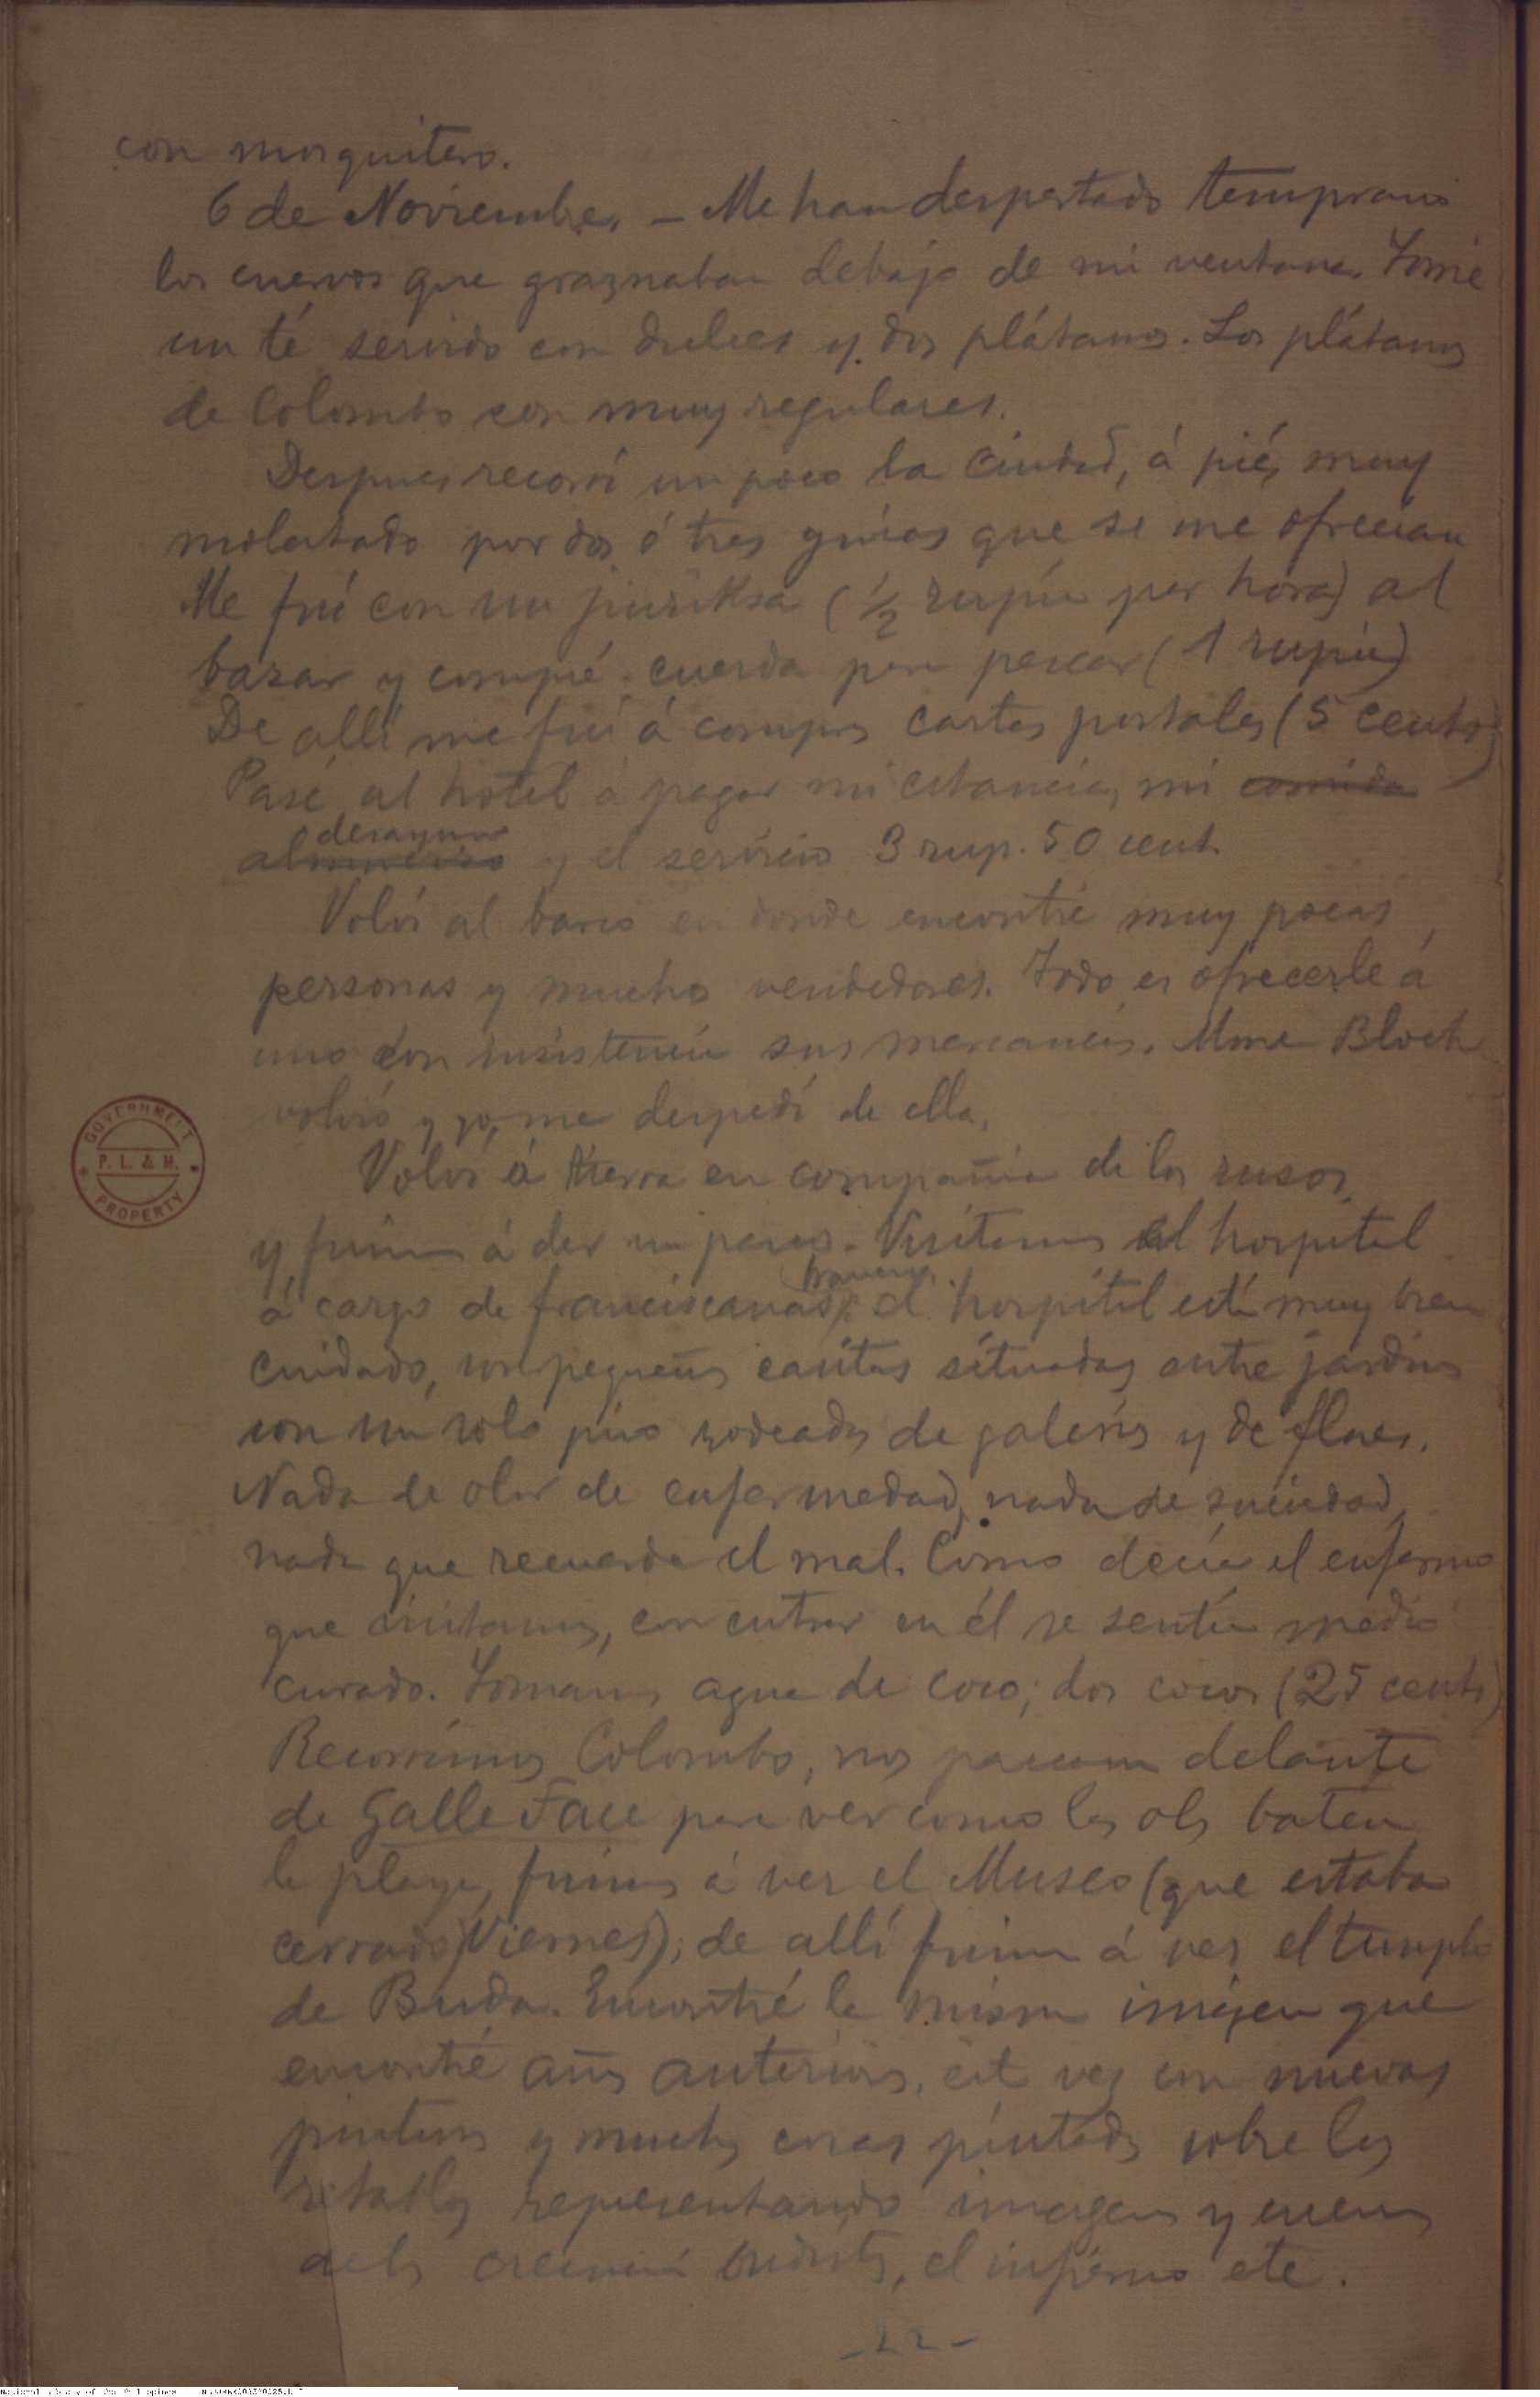 con mosquitero.
6 de Noviembre, – Me han despertado temprano
los cuervos que graznaban debajo de mi ventana. Tomé
un té servido con dulces y dos plátanos. Los plátanos
de Colombo son muy regulares.
Despues recorrí un poco la ciudad, á pié, muy
molestado por dos ó tres guias que se me ofrecian
Me fuí con un (1/2 rupia por hora) al
bazar y compré cuerda para pescar (1 rupia)
De allí me fuí á comprar cartas postales (5 cents)
Pasé al hotel á pagar mi estancia, mi comida
desayuno
almuerzo y el servicio 3 rup. 50 cent.
Volví al barco en donde encontré muy pocas
personas y muchos vendedores. Todo es ofrecerle á
uno con insistencia sus mercancias. Mme Bloch
volvió y yo me despedí de ella.
Volví á tierra en compañia de los rusos,
y fuimos á dar un paseo. Visitamos el hospital
á cargo de franciscanas; el hospital está muy bien
cuidado, son pequeñas casitas situadas entre jardines
con un solo piso rodeadas de galerias y de flores.
Nada de olor de enfermedad, nada de suciedad,
nada que recuerde el mal. Como decia el enfermo
que visitamos, con entrar en él se sentia medio
curado. Tomamos agua de coco; dos cocos (25 cents)
Recorrimos Colombo, nos delante
de Galle Face para ver como las olas baten
la playa, fuimos á ver el Museo (que estaba
cerrado Viernes); de allí fuimos á ver el templo
de Buda. Encontré la misma imágen que
encontré años anteriores, esta vez con nuevas
pinturas y muchas cosas pintadas sobre las
representando imagenes y escenas
de las creencias budistas, el infierno etc.
-22-
GOVERNMENT
P. L. & M.
PROPERTY
National Library of the Philippines